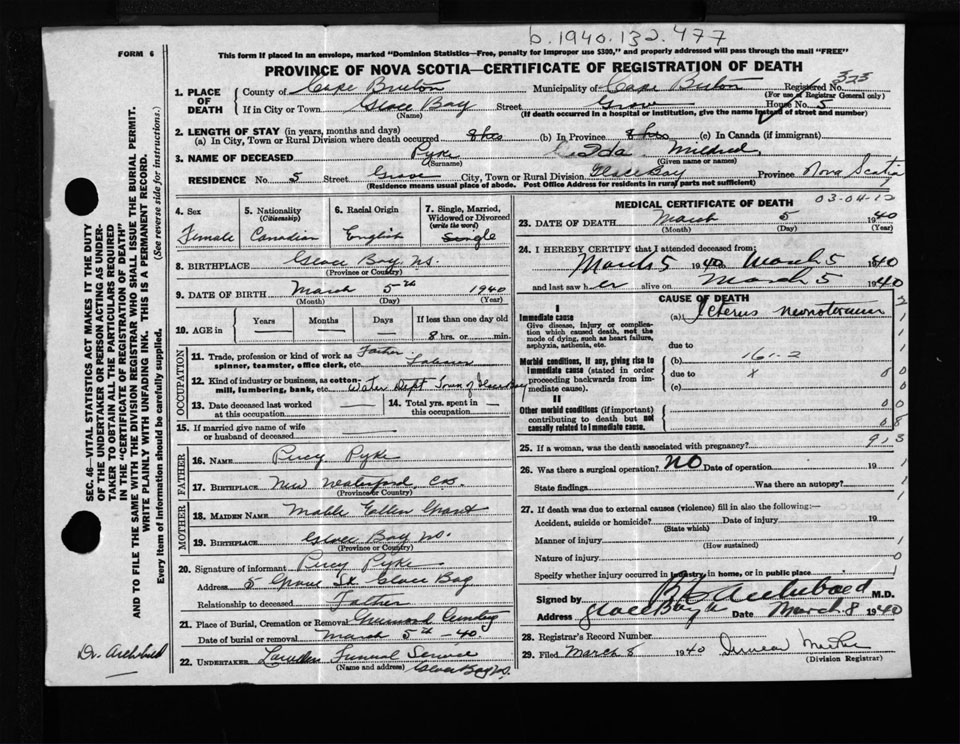 b.1940.132.477
FORM 6
This form if placed in an envelope, marked "Dominion Statistics—Free, penalty for improper use $300," and properly addressed will pass through the mail "FREE"
PROVINCE OF NOVA SCOTIA—CERTIFICATE OF REGISTRATION OF DEATH
SEC. 46—VITAL STATISTICS ACT MAKES IT THE DUTY
OF THE UNDERTAKER OR PERSON ACTING AS UNDER-
TAKER TO OBTAIN ALL THE PARTICULARS REQUIRED
IN THE "CERTIFICATE OF REGISTRATION OF DEATH"
AND TO FILE THE SAME WITH THE DIVISION REGISTRAR WHO SHALL ISSUE THE BURIAL PERMIT.
WRITE PLAINLY WITH UNFADING INK. THIS IS A PERMANENT RECORD.
Every item of information should be carefully supplied. (See reverse side for instructions.)
1. PLACE OF DEATH
County of Cape Breton Municipality of Cape Breton Registered No. 323
(For use of Registrar General only)
If in City or Town Glace Bay Street Grove House No. 5
(Name) (If death occurred in a hospital or institution, give the name instead of street and number)
2. LENGTH OF STAY (in years, months and days)
(a) In City, Town or Rural Division where death occurred 8 hrs (b) In Province 8 hrs (c) In Canada (if immigrant)
3. NAME OF DECEASED Pyke Ida Mildred
(Surname) (Given name or names)
RESIDENCE No. 5 Street Grove City, Town or Rural Division Glace Bay Province Nova Scotia
(Residence means usual place of abode. Post Office Address for residents in rural parts not sufficient)
4. Sex 5. Nationality (Citizenship) 6. Racial Origin 7. Single, Married, Widowed or Divorced (write the word)
Female Canadian English Single
8. BIRTHPLACE Glace Bay, N.S.
(Province or Country)
9. DATE OF BIRTH March 5th 1940
(Month) (Day) (Year)
10. AGE in Years Months Days If less than one day old
8 hrs. or min.
OCCUPATION
11. Trade, profession or kind of work as spinner, teamster, office clerk, etc. Father Laborer
12. Kind of industry or business, as cotton-mill, lumbering, bank, etc. Water Dept Town of Glace Bay
13. Date deceased last worked at this occupation 14. Total yrs. spent in this occupation
15. If married give name of wife or husband of deceased
FATHER
16. NAME Percy Pyke
17. BIRTHPLACE New Waterford, C.B.
(Province or Country)
MOTHER
18. MAIDEN NAME Mable Ellen Grant
19. BIRTHPLACE Glace Bay N.S.
(Province or Country)
20. Signature of informant Percy Pyke
Address 5 Grove St Glace Bay
Relationship to deceased Father
21. Place of Burial, Cremation or Removal
Date of burial or removal March 5th -40
22. UNDERTAKER Funeral Service
(Name and address) Glace Bay N.S.
Dr. Archibald
MEDICAL CERTIFICATE OF DEATH
03-04-12
23. DATE OF DEATH March 5 1940
(Month) (Day) (Year)
24. I HEREBY CERTIFY that I attended deceased from:
March 5 1940 March 5 1940
and last saw her alive on March 5 1940
CAUSE OF DEATH
I
Immediate cause
Give disease, injury or complication which caused death, not the mode of dying, such as heart failure, asphyxia, asthenia, etc.
(a) Icterus neonatorum
due to
Morbid conditions, if any, giving rise to immediate cause (stated in order proceeding backwards from immediate cause).
(b) 161.2
due to x
(c)
II
Other morbid conditions (if important) contributing to death but not causally related to immediate cause.
25. If a woman, was the death associated with pregnancy? 913
26. Was there a surgical operation? NO Date of operation 19
State findings Was there an autopsy?
27. If death was due to external causes (violence) fill in also the following:—
Accident, suicide or homicide? Date of injury 19
(State which)
Manner of injury
(How sustained)
Nature of injury
Specify whether injury occurred in industry, in home, or in public place
Signed by Archibald M.D.
Address Glace Bay Date March 8 1940
28. Registrar's Record Number
29. Filed March 8 1940
(Division Registrar)